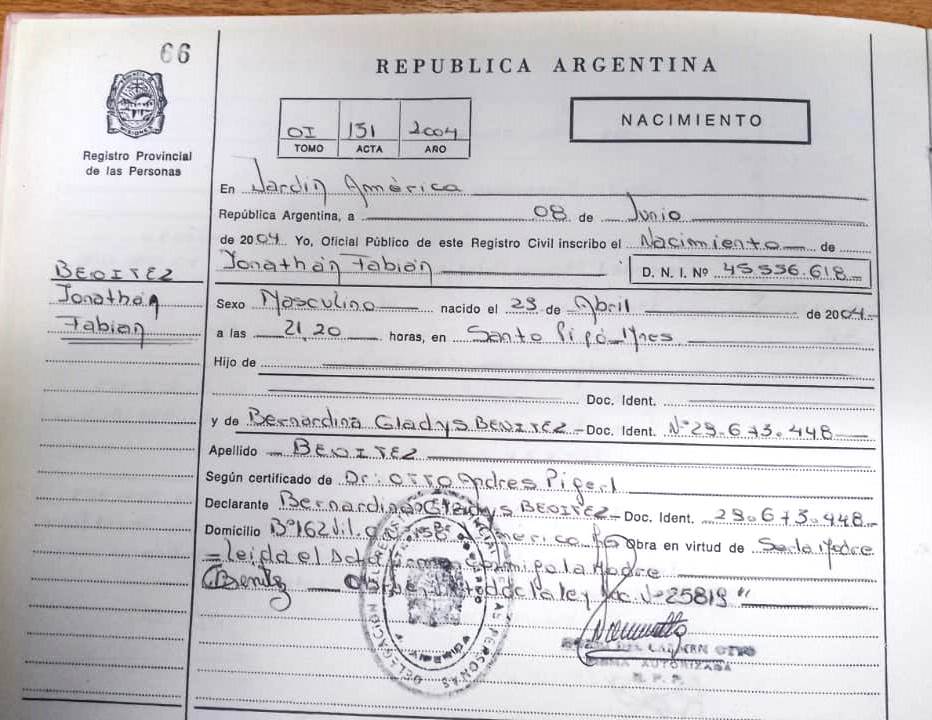 66
REPUBLICA ARGENTINA
PROVINCIA DE MISIONES
Registro Provincial
de las Personas
OI 131 2004
TOMO ACTA AÑO
NACIMIENTO
En Jardín América
República Argentina, a 08 de Junio
de 2004 Yo, Oficial Público de este Registro Civil inscribo el Nacimiento de
Jonathan Fabian D. N. I. Nº 45.556.618
BENITEZ
Jonathan
Fabian
Sexo Masculino nacido el 29 de Abril de 2004
a las 21,20 horas, en Santo Pipó-Mnes
Hijo de
Doc. Ident.
y de Bernardina Gladys BENITEZ - Doc. Ident. Nº 29.673.448
Apellido BENITEZ
Según certificado de Dr: Otto Andres Pigerl
Declarante Bernardina Gladys BENITEZ - Doc. Ident. 29.673.448
Domicilio Bº 162 Viv. América Obra en virtud de Ser la Madre
= leida el Acta firma conmigo la Madre
Benitez de la ley Nº 25819 "
DELEGACION
AUTORIZADA
R. P. P.